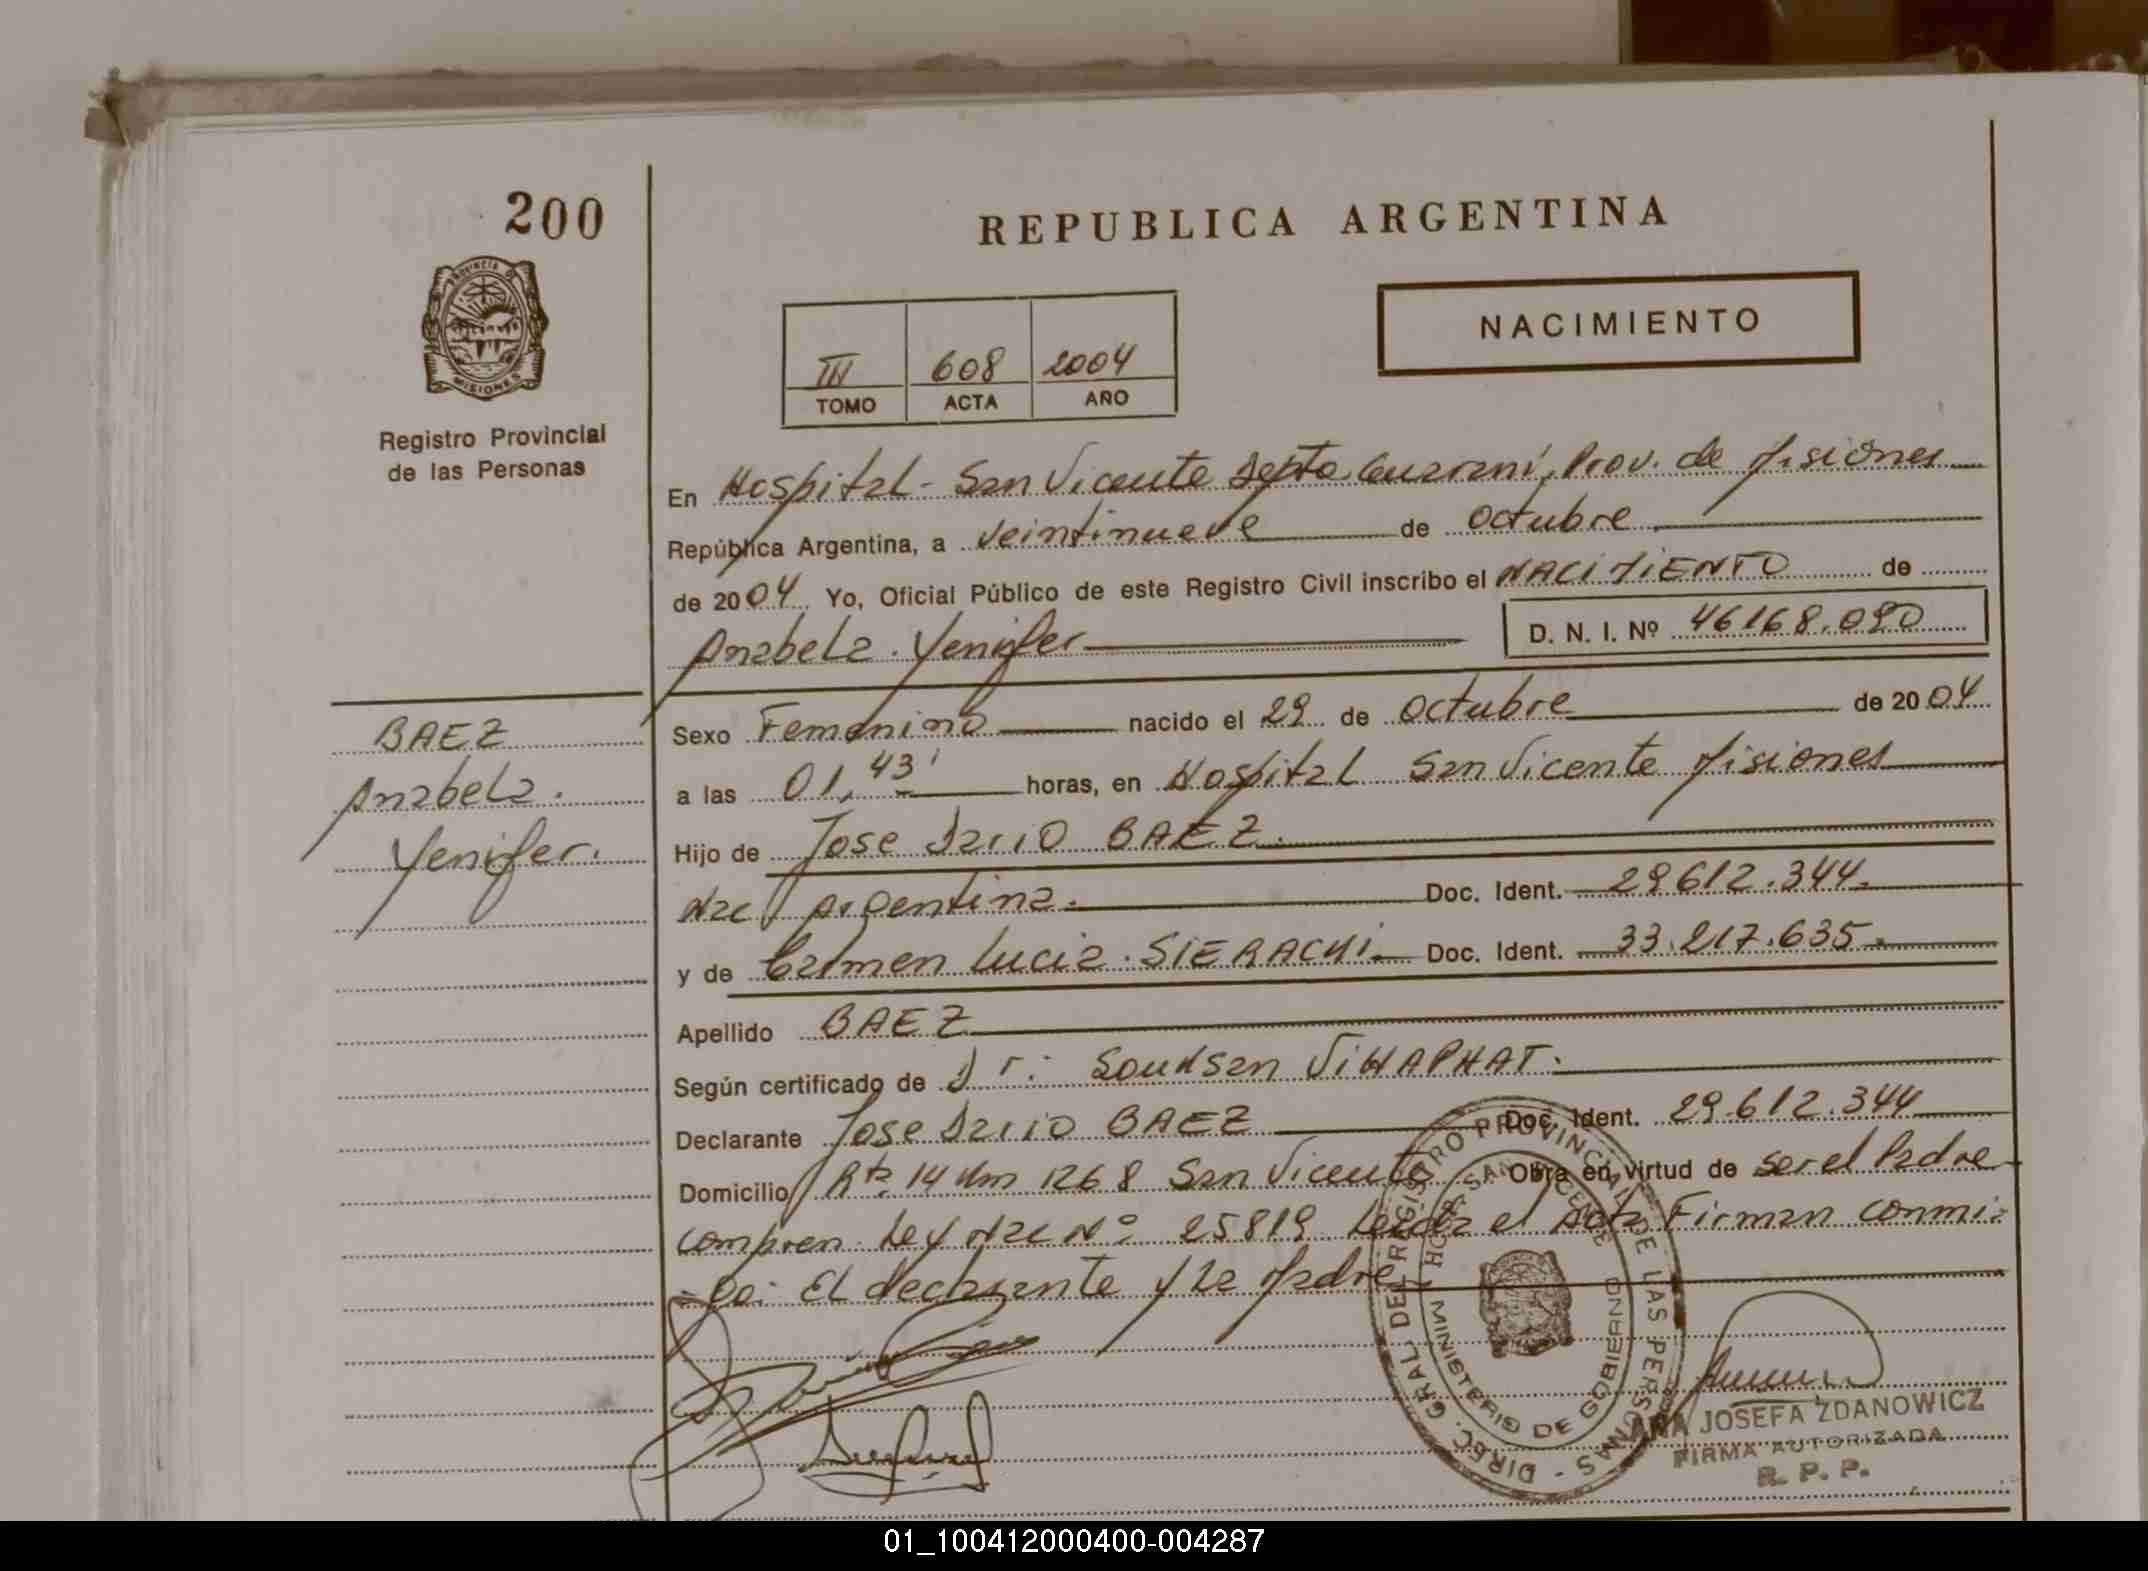 200
REPUBLICA ARGENTINA
PROVINCIA DE
MISIONES
Registro Provincial
de las Personas
NACIMIENTO
III 608 2004
TOMO ACTA AÑO
En Hospital - San Vicente Depto. Guarani, Prov. de Misiones
República Argentina, a veintinueve de octubre
de 2004 Yo, Oficial Público de este Registro Civil inscribo el NACIMIENTO de
Anabela. Yenifer D. N. I. Nº 46168.090
BAEZ
Anabela.
Yenifer.
Sexo Femenino nacido el 29 de octubre de 2004
a las 01,43' horas, en Hospital San Vicente Misiones
Hijo de Jose Dario BAEZ.
Nac/ Argentina. Doc. Ident. 29612.344.
y de Carmen Lucia. SIERACKI Doc. Ident. 33.217.635.
Apellido BAEZ
Según certificado de Dr:
Declarante Jose Dario BAEZ Doc. Ident. 29.612.344
Domicilio Rta. 14 Km 1268 San Vicente Obra en virtud de ser el Padre
compren. Ley Nac Nº 25819 Leida el Acta Firman conmi-
-go: El declarante y la Madre
DIREC. GRAL. DEL REGISTRO PROVINCIAL DE LAS PERSONAS -
MINISTERIO DE GOBIERNO
SAN VICENTE
ANA JOSEFA ZDANOWICZ
FIRMA AUTORIZADA
R. P. P.
01_100412000400-004287